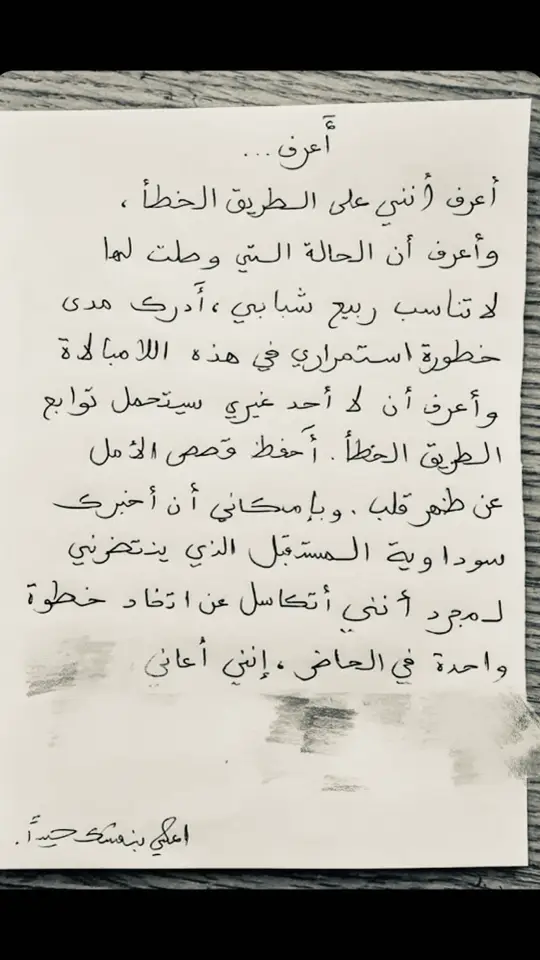 أعرف ...
أعرف أنني على الطريق الخطأ ،
وأعرف أن الحالة التي وصلت لها
لا تناسب ربيع شبابي ، أدرك مدى
خطورة استمراري في هذه اللامبالاة
وأعرف أن لا أحد غيري سيتحمل توابع
الطريق الخطأ . أحفظ قصص الأمل
عن ظهر قلب . وبإمكاني أن أخبرك
سوداوية المستقبل الذي ينتضرني
لمجرد أنني أتكاسل عن اتخاد خطوة
واحدة في الحاضر ، إنني أعاني
اعتني بنفسك جيداً .